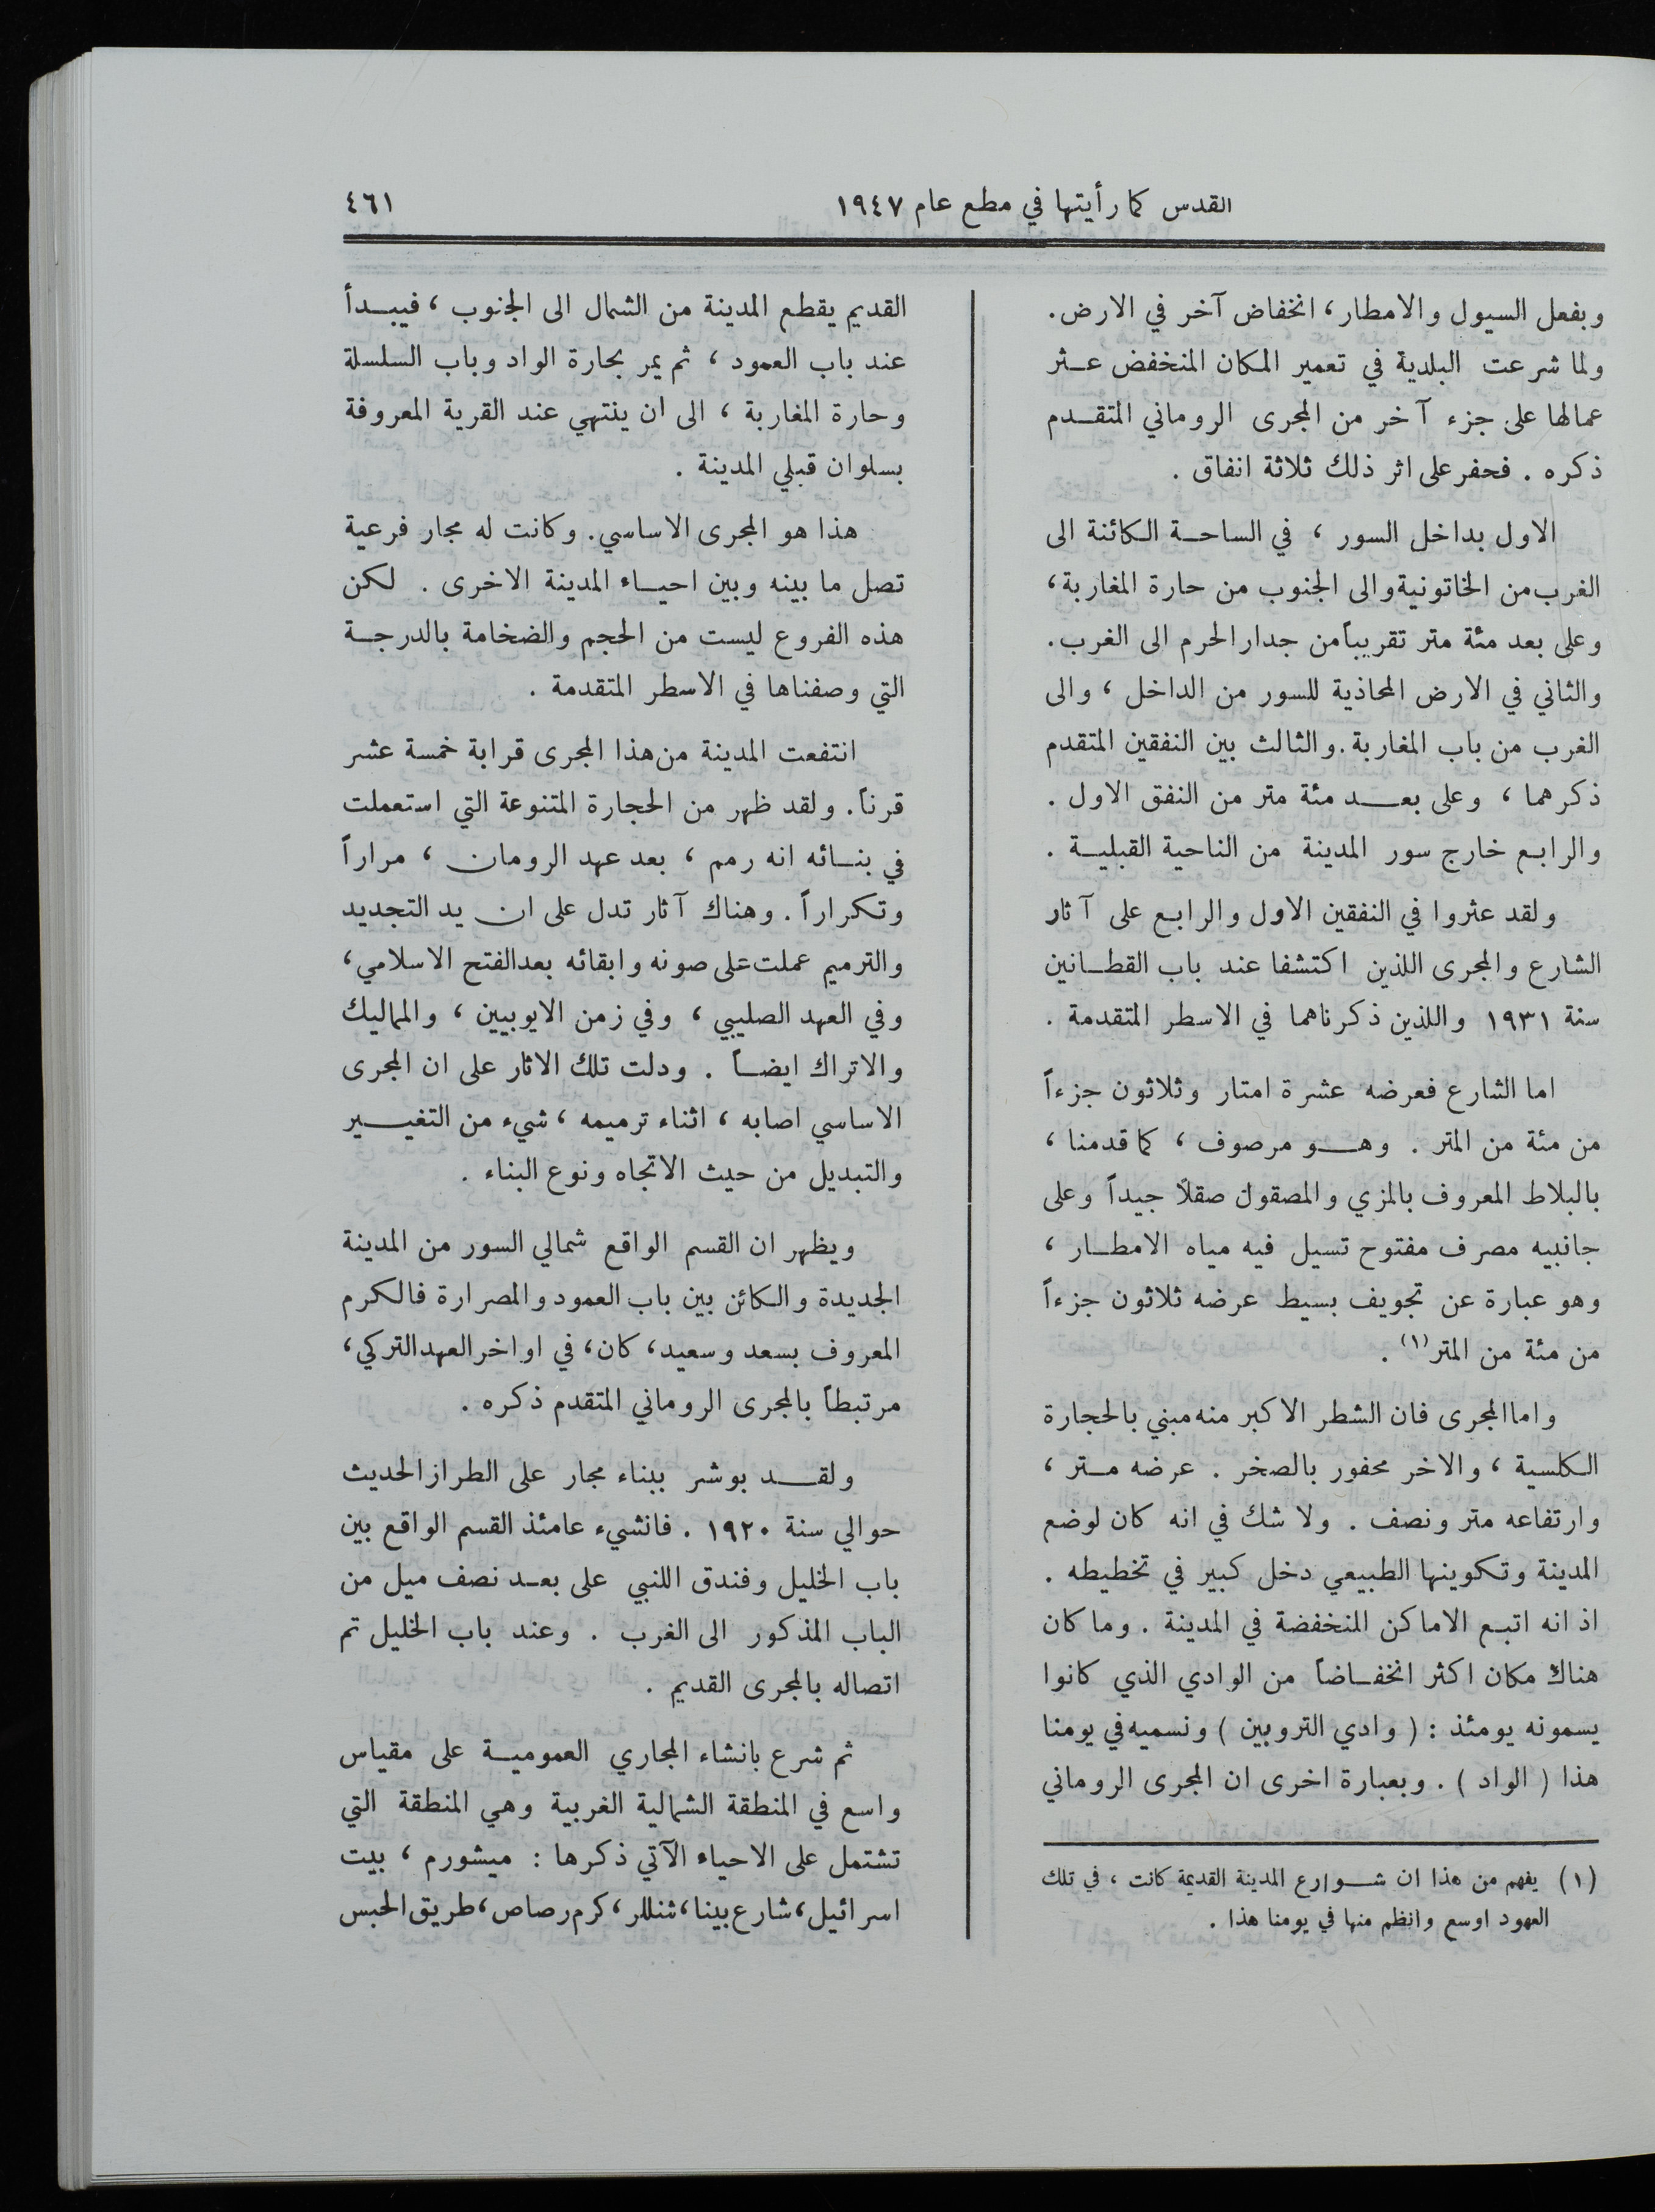 القدس كما رأيتها في مطع عام ١٩٤٧
٤٦١
وبفعل السيول والامطار، انخفاض آخر في الارض.
ولما شرعت البلدية في تعمير المكان المنخفض عثر
عمالها على جزء آخر من المجرى الروماني المتقدم
ذكره . فحفر على اثر ذلك ثلاثة انفاق .
الاول بداخل السور ، في الساحة الكائنة الى
الغرب من الخاتونية والى الجنوب من حارة المغاربة،
وعلى بعد مئة متر تقريباً من جدار الحرم الى الغرب.
والثاني في الارض المحاذية للسور من الداخل ، والى
الغرب من باب المغاربة. والثالث بين النفقين المتقدم
ذكرهما ، وعلى بعد مئة متر من النفق الاول .
والرابع خارج سور المدينة من الناحية القبلية .
ولقد عثروا في النفقين الاول والرابع على آثار
الشارع والمجرى اللذين اكتشفا عند باب القطانين
سنة ١٩٣١ واللذين ذكرناهما في الاسطر المتقدمة .
اما الشارع فعرضه عشرة امتار وثلاثون جزءاً
من مئة من المتر . وهو مرصوف ، كما قدمنا ،
بالبلاط المعروف بالمزي والمصقول صقلاً جيداً وعلى
جانبيه مصرف مفتوح تسيل فيه مياه الامطار ،
وهو عبارة عن تجويف بسيط عرضه ثلاثون جزءاً
من مئة من المتر(١) .
واما المجرى فان الشطر الاكبر منه مبني بالحجارة
الكلسية ، والاخر محفور بالصخر . عرضه متر ،
وارتفاعه متر ونصف . ولا شك في انه كان لوضع
المدينة وتكوينها الطبيعي دخل كبير في تخطيطه .
اذ انه اتبع الاماكن المنخفضة في المدينة . وما كان
هناك مكان اكثر انخفاضاً من الوادي الذي كانوا
يسمونه يومئذ : ( وادي التروبين ) ونسميه في يومنا
هذا ( الواد ) . وبعبارة اخرى ان المجرى الروماني
(١) يفهم من هذا ان شوارع المدينة القديمة كانت ، في تلك
العهود اوسع وانظم منها في يومنا هذا .
القديم يقطع المدينة من الشمال الى الجنوب ، فيبدأ
عند باب العمود ، ثم يمر بحارة الواد وباب السلسلة
وحارة المغاربة ، الى ان ينتهي عند القرية المعروفة
بسلوان قبلي المدينة .
هذا هو المجرى الاساسي. وكانت له مجار فرعية
تصل ما بينه وبين احياء المدينة الاخرى . لكن
هذه الفروع ليست من الحجم والضخامة بالدرجة
التي وصفناها في الاسطر المتقدمة .
انتفعت المدينة من هذا المجرى قرابة خمسة عشر
قرناً. ولقد ظهر من الحجارة المتنوعة التي استعملت
في بنائه انه رمم ، بعد عهد الرومان ، مراراً
وتكراراً. وهناك آثار تدل على ان يد التجديد
والترميم عملت على صونه وابقائه بعد الفتح الاسلامي،
وفي العهد الصليبي ، وفي زمن الايوبيين ، والمماليك
والاتراك ايضاً . ودلت تلك الاثار على ان المجرى
الاساسي اصابه ، اثناء ترميمه ، شيء من التغيير
والتبديل من حيث الاتجاه ونوع البناء .
ويظهر ان القسم الواقع شمالي السور من المدينة
الجديدة والكائن بين باب العمود والمصرارة فالكرم
المعروف بسعد وسعيد، كان، في اواخر العهد التركي،
مرتبطاً بالمجرى الروماني المتقدم ذكره .
ولقد بوشر ببناء مجار على الطراز الحديث
حوالي سنة ١٩٢٠ . فانشيء عامئذ القسم الواقع بين
باب الخليل وفندق اللنبي على بعد نصف ميل من
الباب المذكور الى الغرب . وعند باب الخليل تم
اتصاله بالمجرى القديم .
ثم شرع بانشاء المجاري العمومية على مقياس
واسع في المنطقة الشمالية الغربية وهي المنطقة التي
تشتمل على الاحياء الآتي ذكرها : ميشورم ، بيت
اسرائيل، شارع بينا، شنللر، كرم رصاص، طريق الحبس